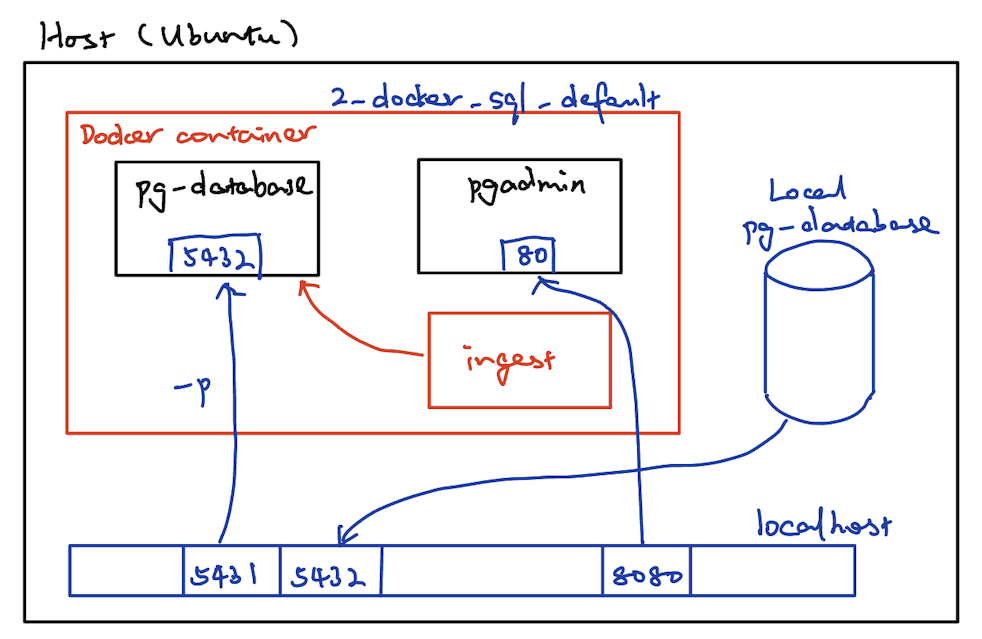 Host (Ubuntu)
2-docker_sql_default
Docker container
pg-database
5432
pgadmin
80
Local
pg-database
ingest
-p
localhost
5431
5432
8080